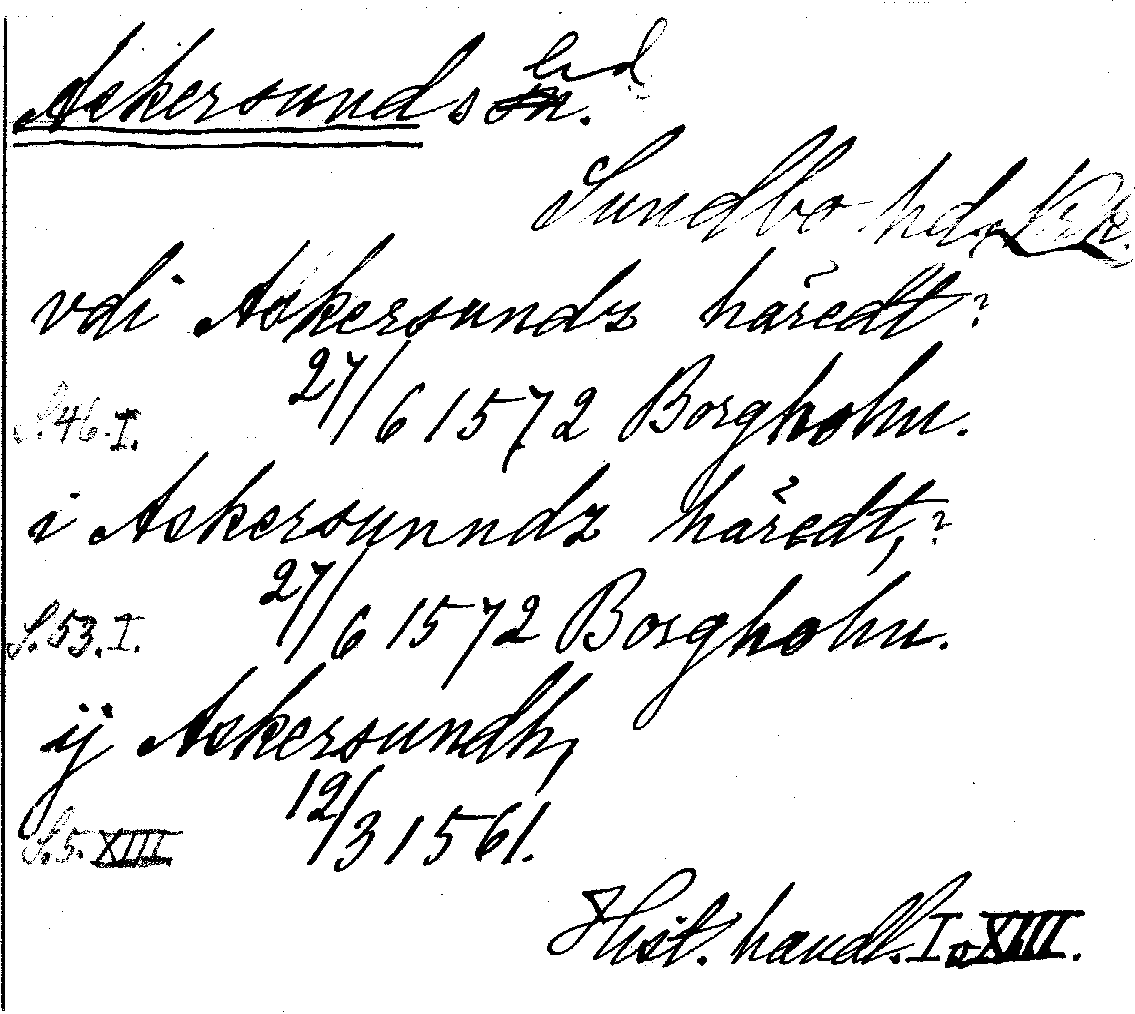 Askersunds hd.
Sundbo hd,
vdi Askersundz häredt?
S. 46. I. 27/6 1572 Borgholm.
i Askersunndz häredt,?
S. 53. I. 27/6 1572 Borgholm.
ij Askersundh,
S. 5. XIII 12/3 1561.
Hist. handl. I o XIII.